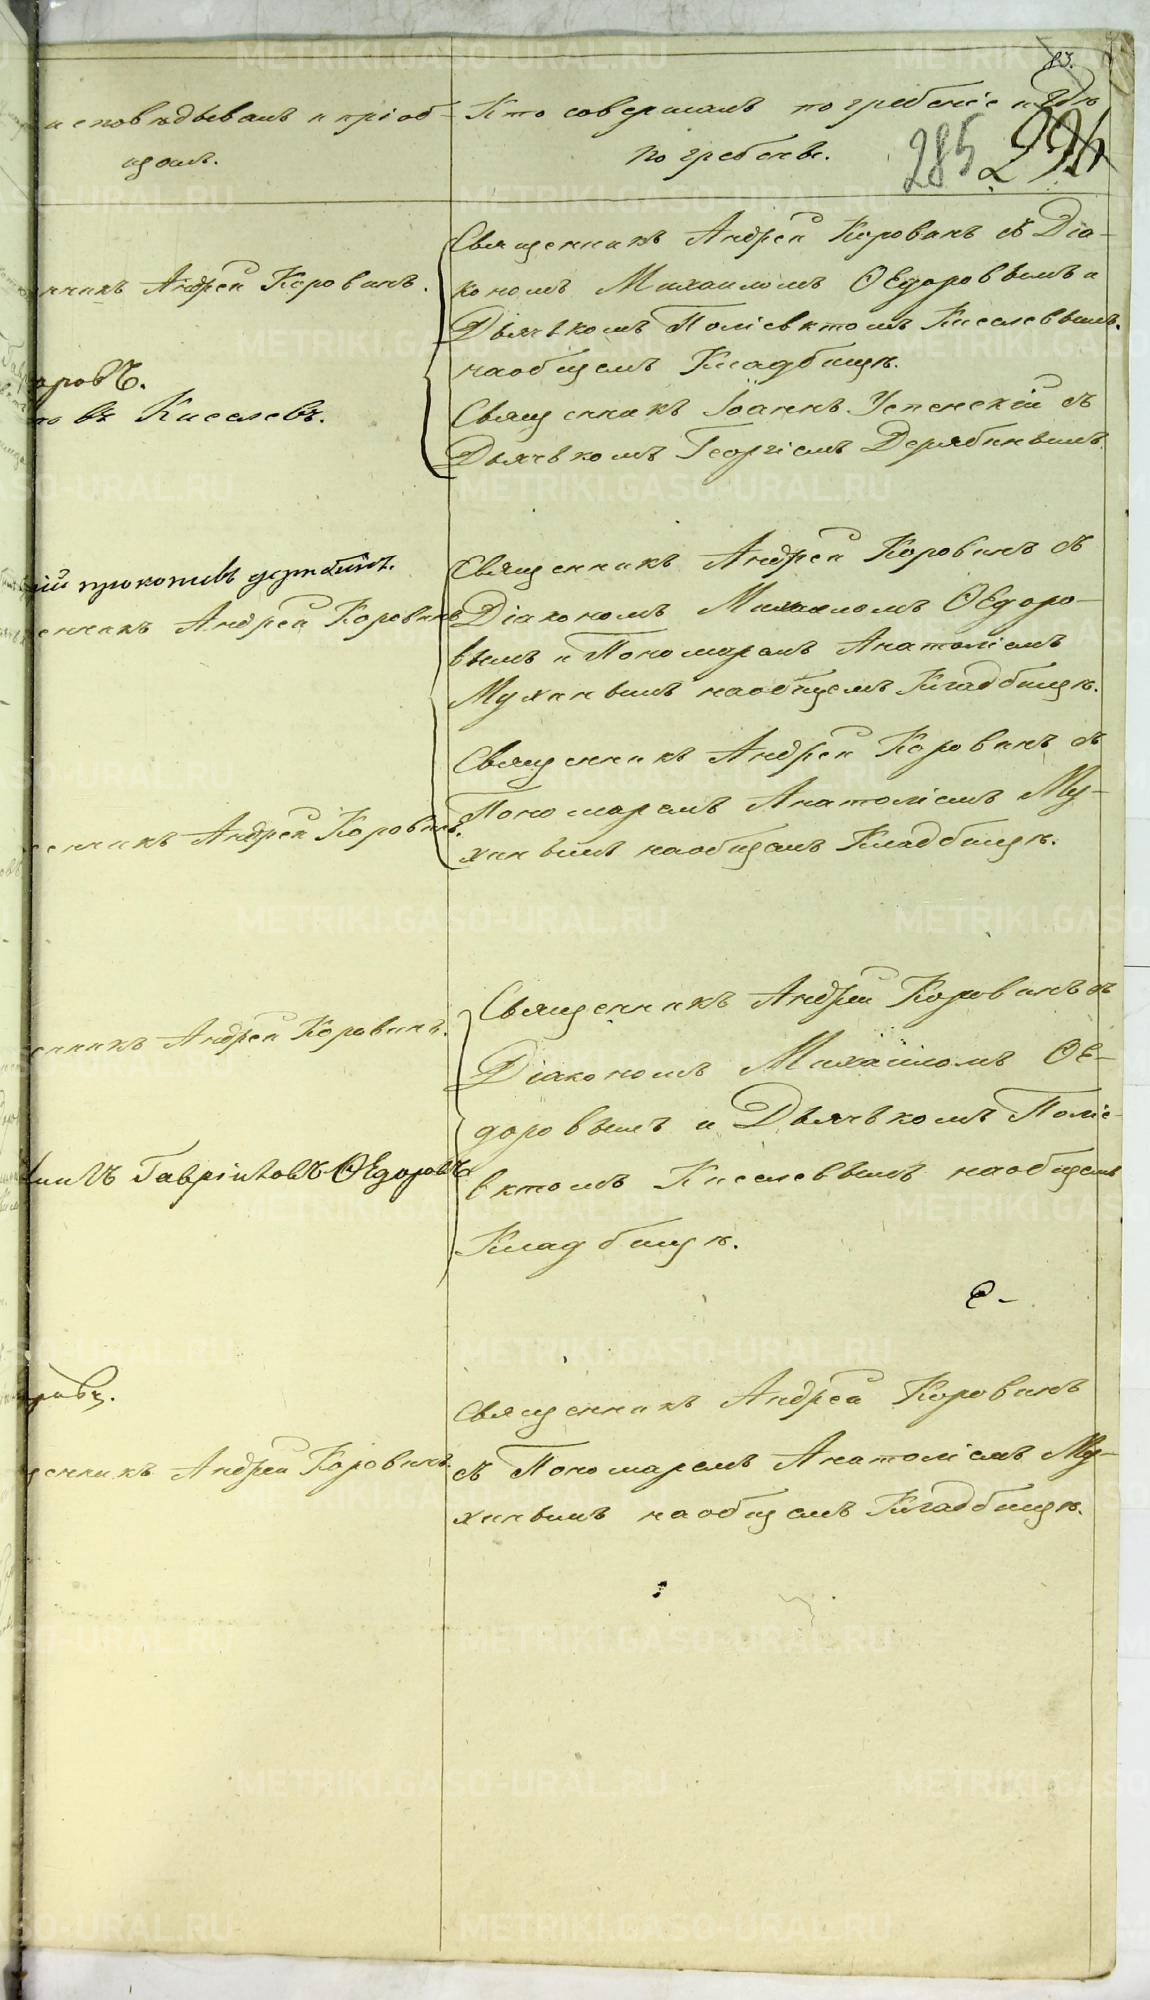 83.
исповѣдывалъ и пріоб-
щалъ.
Кто совершалъ погребеніе и гдѣ
погребены.
285
Андрей Коровинъ.
въ Киселевъ.
Священникъ Андрей Коровинъ съ Діа-
кономъ Михаиломъ Ѳедоровымъ и
Дьячькомъ Поліевктомъ Киселевымъ.
наобщемъ Кладбищѣ.
Священникъ Іоаннъ Успенскій съ
Дьячькомъ Георгіемъ Дерябинымъ.
прокопьевъ дерябинъ.
Андрей Коровинъ
Священникъ Андрей Коровинъ съ
Діакономъ Михаиломъ Ѳедоро-
вымъ и Пономаремъ Анатоліемъ
Мухинымъ наобщемъ Кладбищѣ.
Андрей Коровинъ.
Священникъ Андрей Коровинъ съ
Пономаремъ Анатоліемъ Му-
хинымъ наобщемъ Кладбищѣ.
Андрей Коровинъ.
Гавриловъ Ѳедоровъ
Священникъ Андрей Коровинъ съ
Діакономъ Михаиломъ Ѳе-
доровымъ и Дьячькомъ Поліе-
вктомъ Киселевымъ наобщемъ
Кладбищѣ.
Андрей Коровинъ.
Священникъ Андрей Коровинъ
съ Пономаремъ Анатоліемъ Му-
хинымъ наобщемъ Кладбищѣ.
METRIKI.GASO-URAL.RU